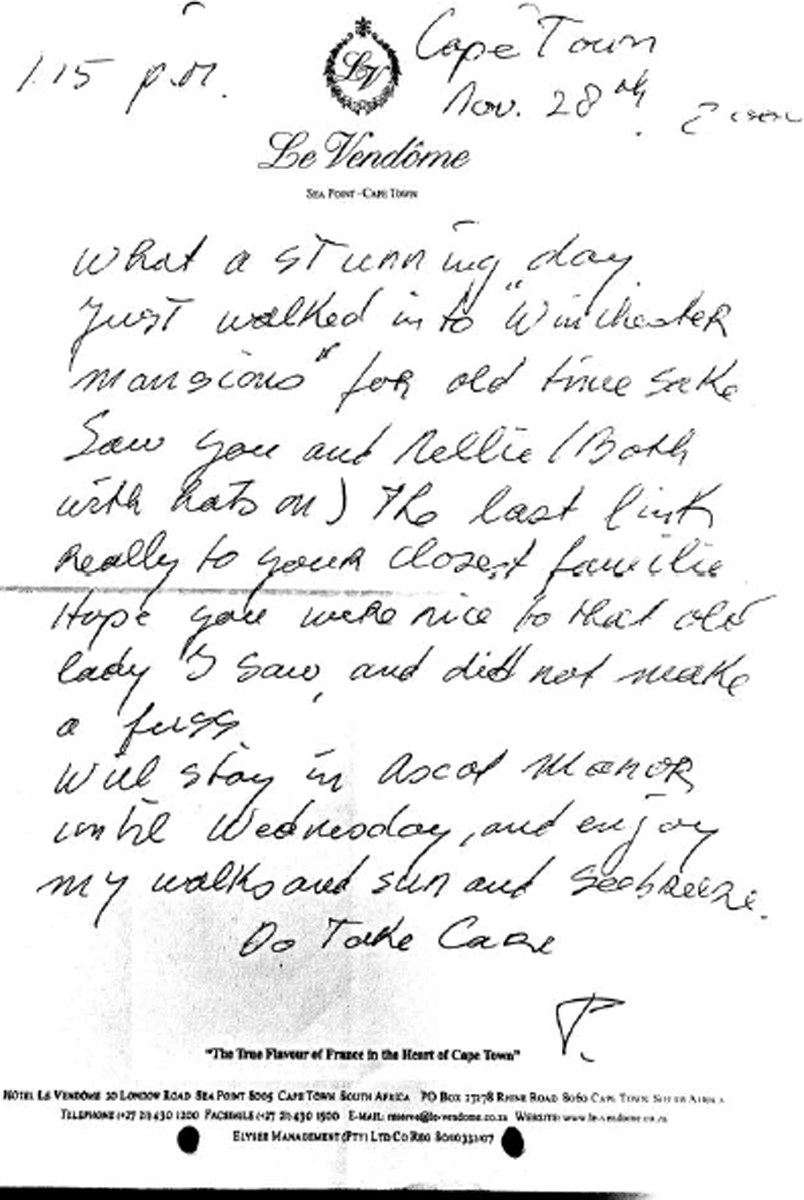 1.15 p.m.
Cape Town
Nov. 28th.
LV
Le Vendôme
SEA POINT - CAPE TOWN
What a stunning day
Just walked in to "Winchester
mansions" for old time sake
Saw you and Nellie (Both
with hats on) The last link
Really to your closest familie
Hope you were nice to that old
lady I saw, and did not make
a fuss
Will stay in Ascot Manor
until Wednesday, and enjoy
my walks and sun and seebreeze.
Do Take Care
P.
"The True Flavour of France in the Heart of Cape Town"
HOTEL LE VENDÔME 20 LONDON ROAD SEA POINT 8005 CAPE TOWN SOUTH AFRICA PO BOX 13178 RHINE ROAD 8060 CAPE TOWN SOUTH AFRICA
TELEPHONE (+27 21) 430 1200 FACSIMILE (+27 21) 430 1500 E-MAIL: reserve@le-vendome.co.za WEBSITE: www.le-vendome.co.za
ELYSEE MANAGEMENT (PTY) LTD CO REG